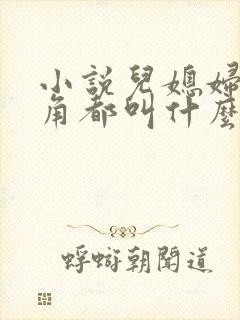 小説兒媳婦
角都叫什麼
蜉蝣朝聞道